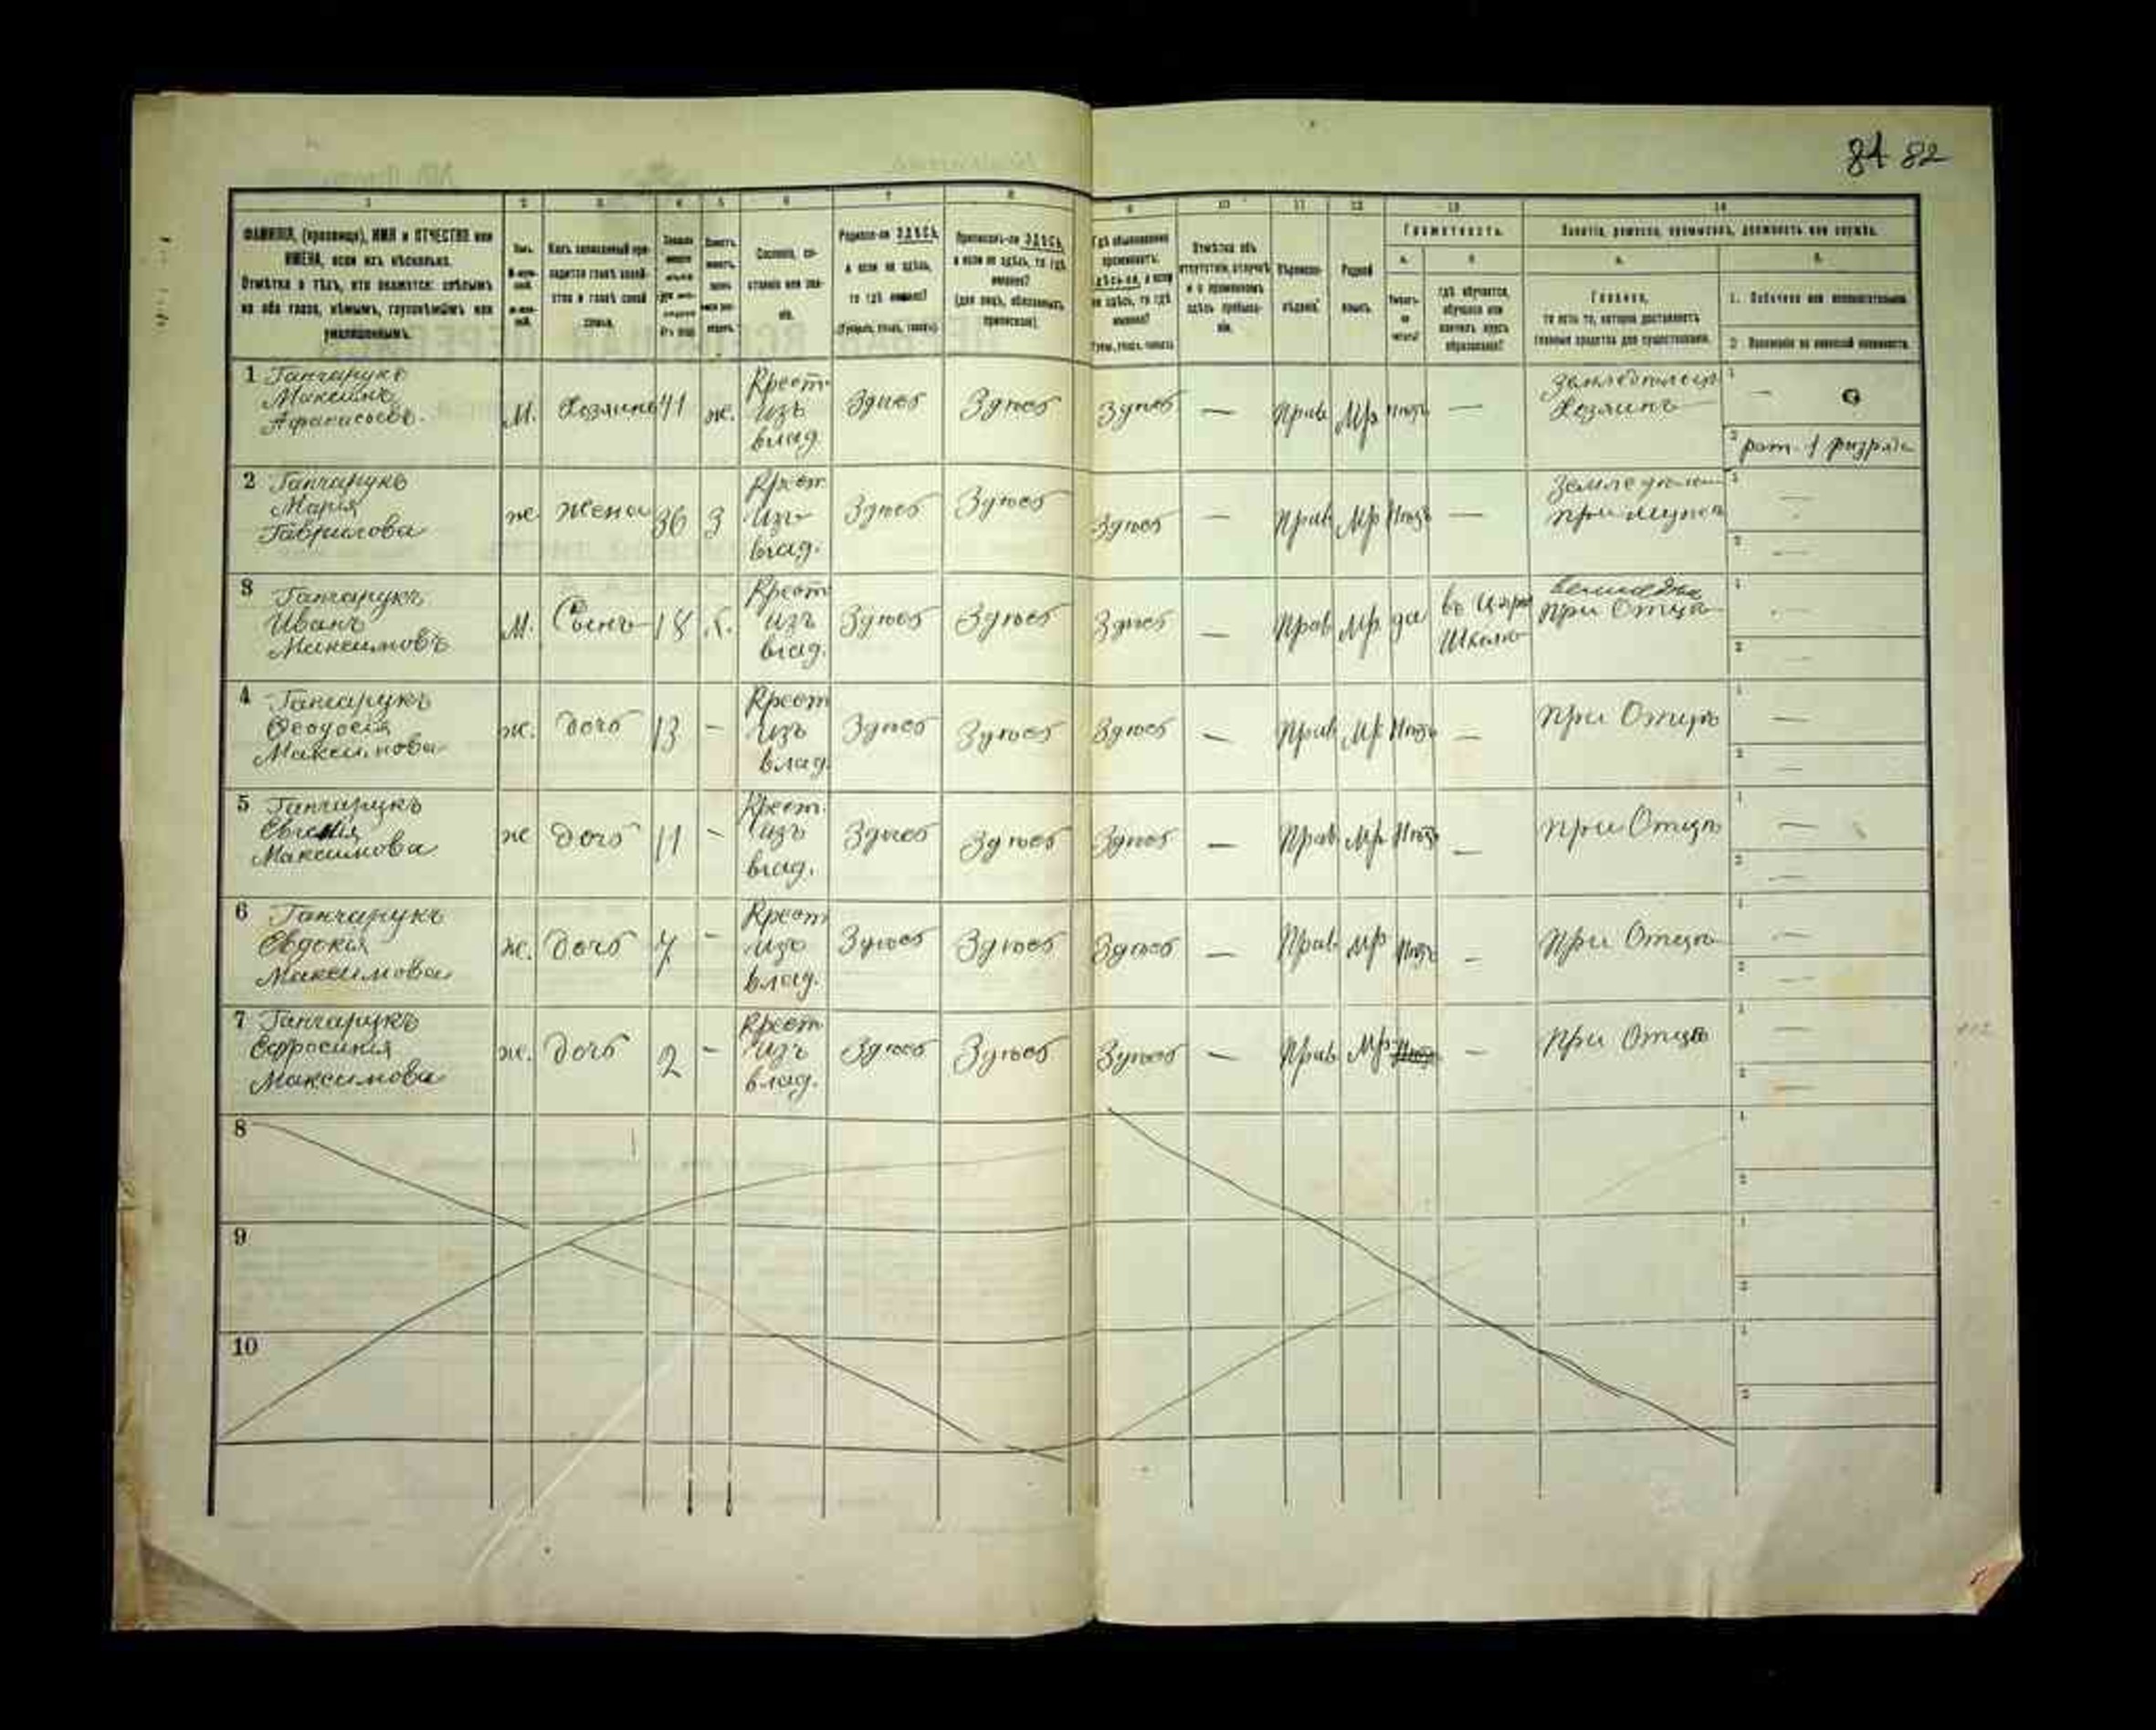 84 82
1 2 3 4 5 6 7 8 9 10 11 12 13 14
ФАМИЛІЯ, (прозвище), ИМЯ и ОТЧЕСТВО или
ИМЕНА, если ихъ нѣсколько.
Отмѣтка о тѣхъ, кто окажется: слѣпымъ
на оба глаза, нѣмымъ, глухонѣмымъ или
умалишеннымъ.
Полъ.
Какъ записанный при-
ходится главѣ хозяй-
ства и главѣ своей
семьи.
Сословіе, со-
стояніе или зва-
ніе.
Родился-ли ЗДѢСЬ,
а если не здѣсь,
то гдѣ именно?
(Губернія, уѣздъ, городъ).
Приписанъ-ли ЗДѢСЬ,
а если не здѣсь, то гдѣ
именно?
(для лицъ, обязанныхъ
припискою).
Гдѣ обыкновенно
проживаетъ:
здѣсь-ли, а если
не здѣсь, то гдѣ
именно?
Отмѣтка объ
отсутствіи, отлучкѣ
и о временномъ
здѣсь пребыва-
ніи.
Вѣроиспо-
вѣданіе.
Родной
языкъ.
Грамотность.
а. б.
Умѣетъ-
ли
читать?
гдѣ обучается,
обучался или
кончилъ курсъ
образованія?
Занятіе, ремесло, промыселъ, должность или служба.
а. б.
Главное,
то есть то, которое доставляетъ
главныя средства для существованія.
1. Побочное или вспомогательное.
2. Положеніе по воинской повинности.
1 Ганчарукъ
Максимъ
Афанасьевъ.
М. Хозяинъ 41 ж. Крест. изъ влад. Здѣсь Здѣсь Здѣсь — Прав Мр нѣтъ —
Хозяинъ
1 —
2 рат. 1 разряда
2 Ганчарукъ
Марія
Гаврилова
же жена 36 3 Крест изъ влад. Здѣсь Здѣсь Здѣсь — Прав Мр Нѣтъ —
при мужѣ
1 —
2 —
3 Ганчарукъ
Иванъ
Максимовъ
М. Сынъ 18 .х. Крест изъ влад. Здѣсь Здѣсь Здѣсь — Прав Мр да
Школѣ
при Отцѣ
1
2 —
4 Ганчарукъ
Ѳеодосія
Максимова
же. дочь 13 — Крест изъ влад. Здѣсь Здѣсь Здѣсь — Прав Мр Нѣтъ — при Отцѣ
1 —
2 —
5 Ганчарукъ
Евгенія
Максимова
же дочь 11 — Крест. изъ влад. Здѣсь Здѣсь Здѣсь — Прав Мр Нѣтъ — при Отцѣ
1 —
2 —
6 Ганчарукъ
Евдокія
Максимова
же. дочь 7 — Крест изъ влад. Здѣсь Здѣсь Здѣсь — Прав Мр Нѣтъ — при Отцѣ
1 —
2 —
7 Ганчарукъ
Ефросинія
Максимова
же. дочь 2 — Крест изъ влад. Здѣсь Здѣсь Здѣсь — Прав Мр — при Отцѣ
1 —
2 —
8
1
2
9
1
2
10
1
2